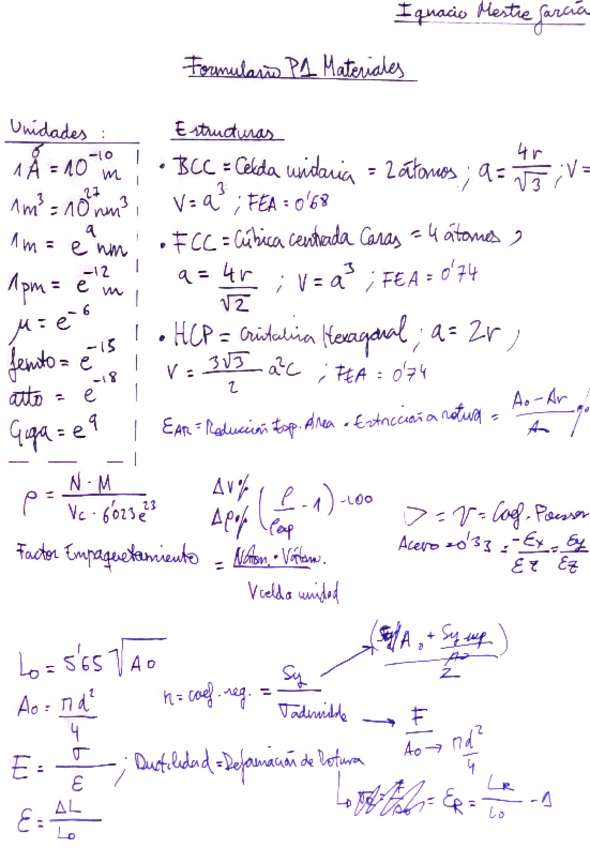 Ignacio Mestre García
Formulario P1 Materiales
Unidades :
1Å = 10^-10 m
1m^3 = 10^27 nm^3
1m = e^9 nm
1pm = e^-12 m
μ = e^-6
femto = e^-15
atto = e^-18
Giga = e^9
Estructuras
• BCC = Celda unitaria = 2 átomos ; a = 4r/√3 ; V =
V = a^3 ; FEA = 0'68
• FCC = Cúbica centrada Caras = 4 átomos ,
a = 4r/√2 ; V = a^3 ; FEA = 0'74
• HCP = Cristalina Hexagonal ; a = 2r ,
V = 3√3/2 a^2c ; FEA = 0'74
EAR = Reducción Área Estricción a rotura = Ao - Ar / A %
ρ = N · M / Vc · 6'023e^23
Δv% Δρ% (ρ/ρexp - 1) · 100
= ν = Coef. Poisson
Acero = 0'33 = -Ex/Ez = Ey/Ez
Factor Empaquetamiento = Nátom. · Vátom. / Vcelda unidad
Lo = 5'65 √Ao
Ao = π d^2/4
n = coef. seg. = Sy / σadmisible
Ao + Sy sup
2
F / Ao → π d^2/4
E = σ/ε ; Ductilidad = Deformación de Rotura
= ER = LR/Lo - 1
ε = ΔL/Lo